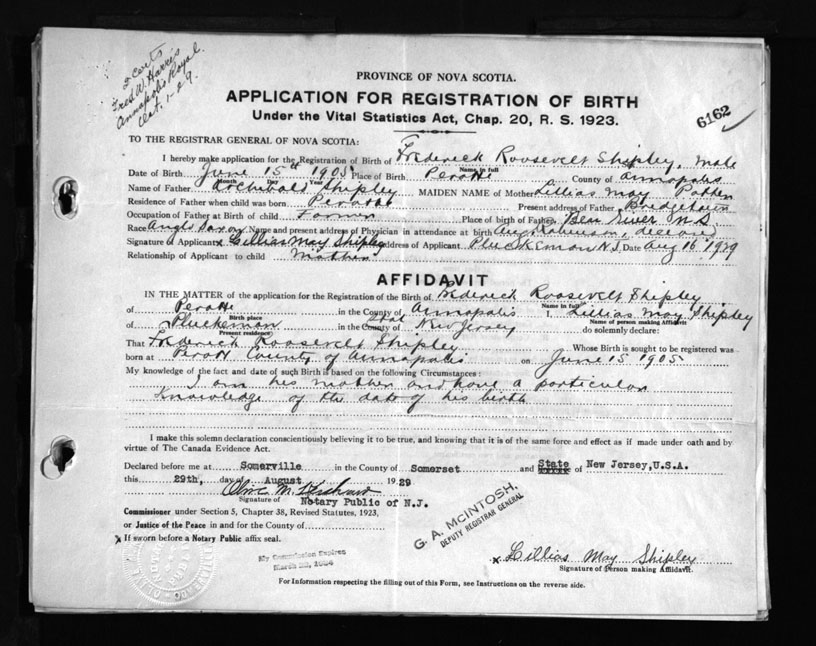 2 certs
Fred W. Harris
Annapolis Royal.
Oct. 1-29.
PROVINCE OF NOVA SCOTIA.
APPLICATION FOR REGISTRATION OF BIRTH
Under the Vital Statistics Act, Chap. 20, R. S. 1923.
6162
TO THE REGISTRAR GENERAL OF NOVA SCOTIA:
I hereby make application for the Registration of Birth of Frederick Roosevelt Shipley, Male
Name in full
Date of Birth June 15th 1905 Place of Birth Perotte County of Annapolis
Month Day Year
Name of Father Archibald Shipley MAIDEN NAME of Mother Lillias May Potter
Residence of Father when child was born Perotte Present address of Father Bridgetown
Occupation of Father at Birth of child Farmer Place of birth of Father Bear River N.S.
Race Anglo Saxon Name and present address of Physician in attendance at birth Robinson, deceased
Signature of Applicant x Lillias May Shipley address of Applicant Pluckemin N.J. Date Aug 16 1929
Relationship of Applicant to child Mother
AFFIDAVIT
IN THE MATTER of the application for the Registration of the Birth of Frederick Roosevelt Shipley
Name in full
of Perotte in the County of Annapolis I, Lillias May Shipley
Birth place Name of person making Affidavit
of Pluckeman in the County of State New Jersey do solemnly declare:
Present residence
That Frederick Roosevelt Shipley Whose Birth is sought to be registered was
born at Perott County of Annapolis on June 15 1905
My knowledge of the fact and date of such Birth is based on the following Circumstances:
I am his mother and have a particular
knowledge of the date of his birth
I make this solemn declaration conscientiously believing it to be true, and knowing that it is of the same force and effect as if made under oath and by
virtue of The Canada Evidence Act.
Declared before me at Somerville in the County of Somerset and State of New Jersey, U.S.A.
this 29th, day of August 1929
Signature of Notary Public of N.J.
Commissioner under Section 5, Chapter 38, Revised Statutes, 1923,
or Justice of the Peace in and for the County of
x If sworn before a Notary Public affix seal.
G. A. MCINTOSH,
DEPUTY REGISTRAR GENERAL
My Commission Expires
March
x Lillias May Shipley
Signature of Person making Affidavit.
For Information respecting the filling out of this Form, see Instructions on the reverse side.